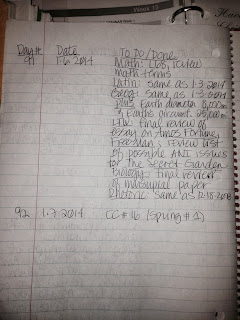 Day # Date To Do/Done
91 1-6-2014 Math: L68, review
math terms
Latin: same as 1-3-2014
Geog: same as 1-3-2014
plus Earth diameter 8,000mi
& Earth's circumf. 25,000mi
final review of
essay on Amos Fortune,
Free Man; review list
of possible ANI issues
for The Secret Garden
Biology: final review
of individual paper
Rhetoric: same as 12-18-2013
92 1-7-2014 CC #16 (Spring #1)